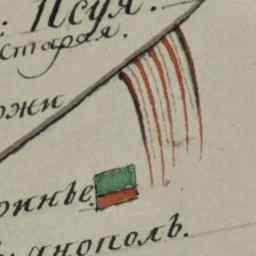 : Псуя.
старая.
ржи
ржнье
анополь.